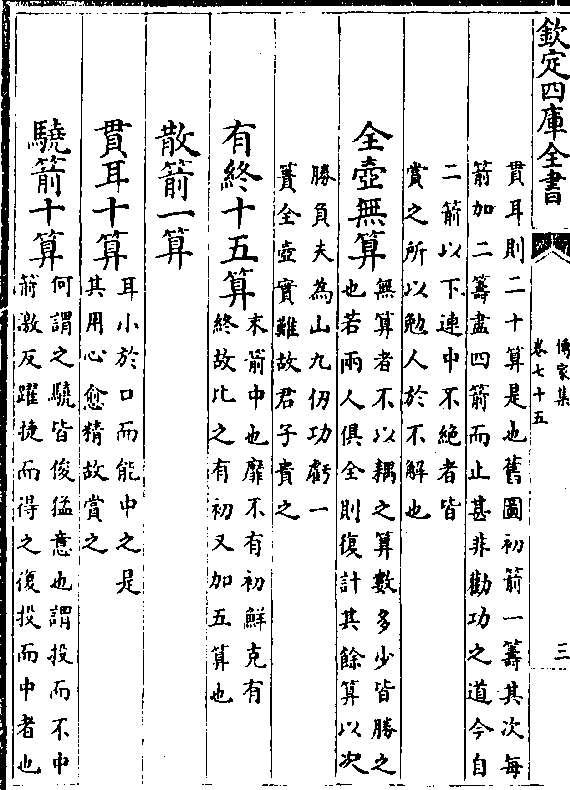 欽定四庫全書
傳家集
卷七十五
三
貫耳則二十算是也舊圖初箭一籌其次每
箭加二籌盡四箭而止甚非勸功之道今自
二箭以下連中不絶者皆
賞之所以勉人於不解也
全壺無算
無算者不以耦之算數多少皆勝之
也若兩人俱全則復計其餘算以决
勝負夫為山九仞功虧一
簣全壺實難故君子貴之
有終十五算
末箭中也靡不有初鮮克有
終故比之有初又加五算也
散箭一算
貫耳十算
耳小於口而能中之是
其用心愈精故賞之
驍箭十算
何謂之驍皆俊猛意也謂投而不中
箭激反躍捷而得之復投而中者也